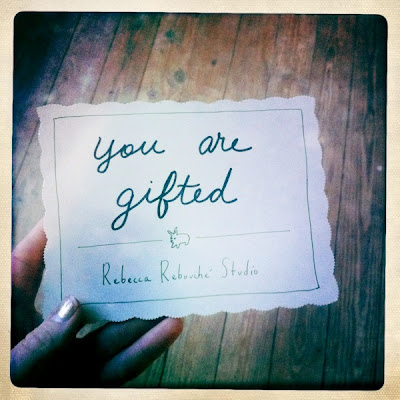 you are
gifted
Rebecca Rebouché Studio